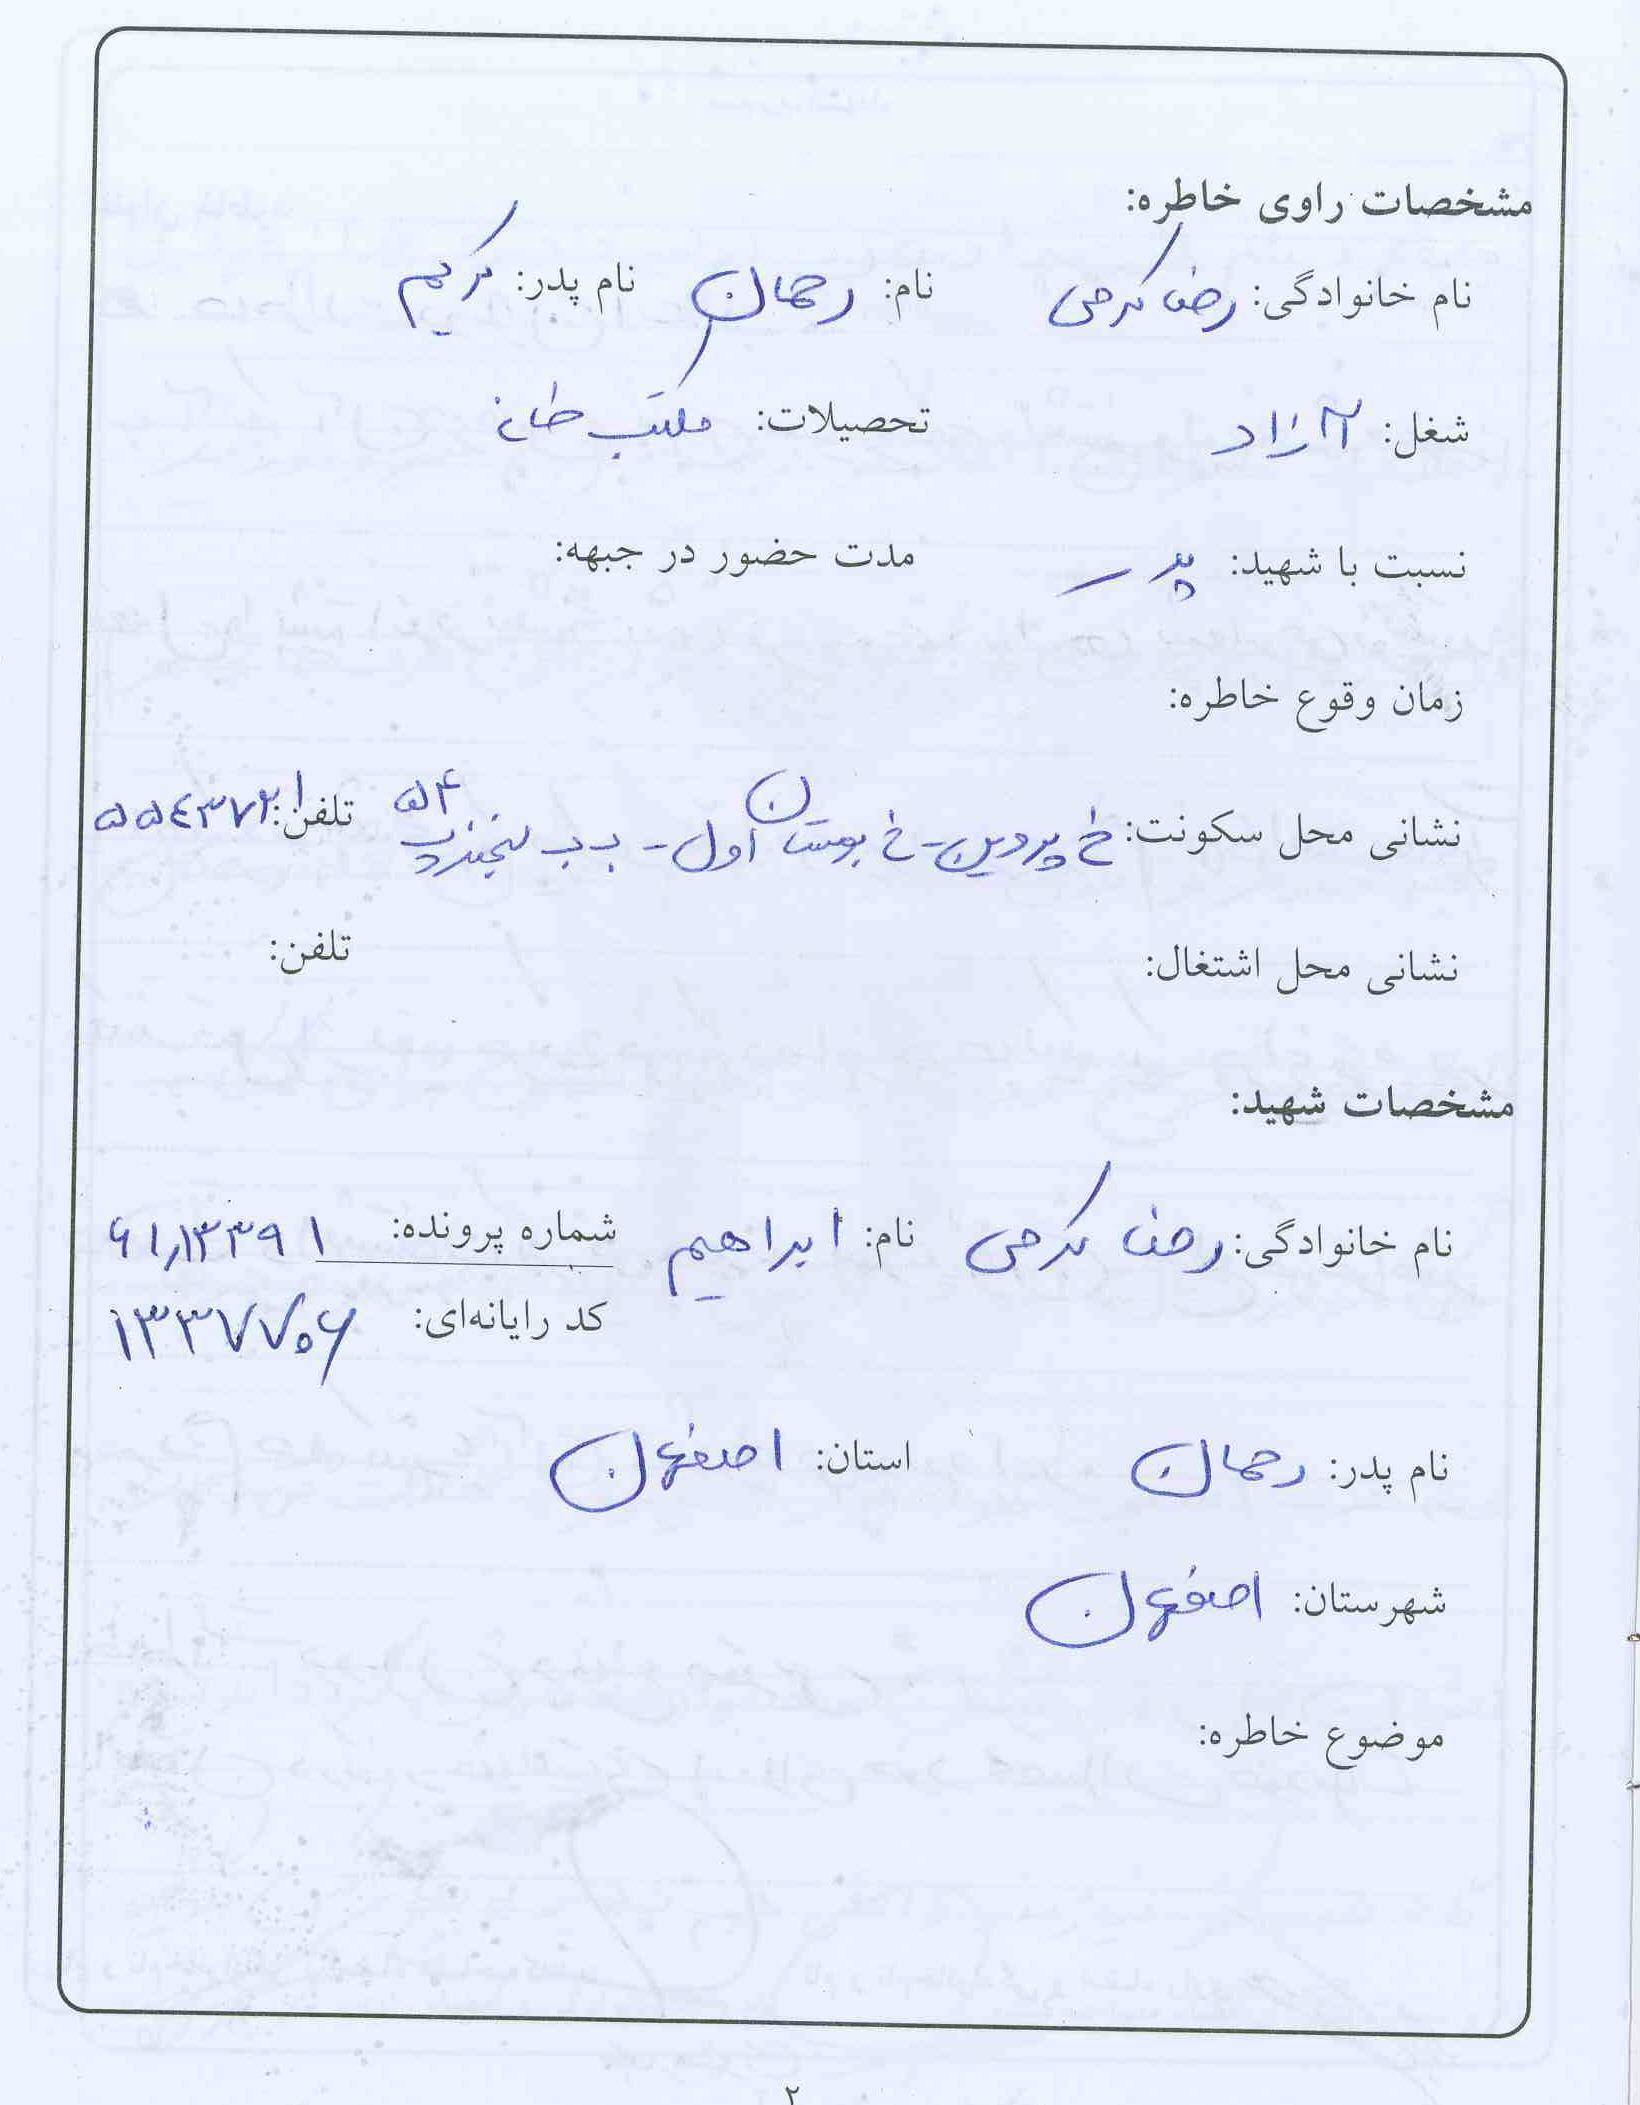 مشخصات راوی خاطره:
نام خانوادگی: رضا کرمی نام: رحمان نام پدر: کریم
شغل: آزاد تحصیلات: مکتب خانه
نسبت با شهید: پدر مدت حضور در جبهه:
زمان وقوع خاطره:
نشانی محل سکونت: خ پروین - خ بوستان اول - ب ب ۵۴ تلفن:
نشانی محل اشتغال: تلفن:
مشخصات شهید:
نام خانوادگی: رضا کرمی نام: ابراهیم شماره پرونده: ۶۱٫۱۳۳۹۱
کد رایانه‌ای: ۱۳۳۷۷۰۶
نام پدر: رحمان استان: اصفهان
شهرستان: اصفهان
موضوع خاطره:
۲